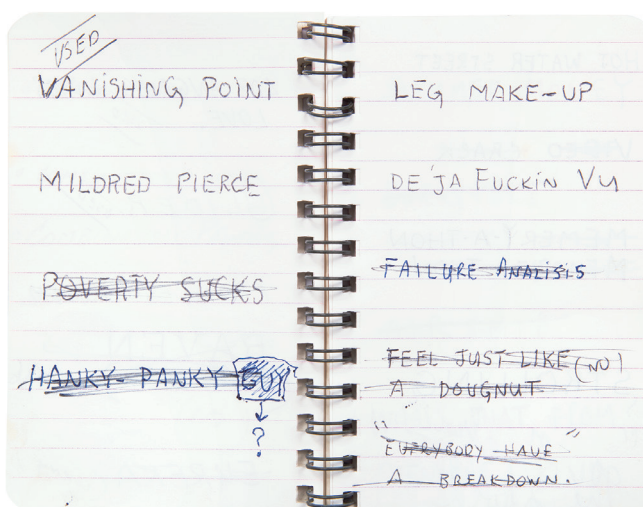 USED
VANISHING POINT
MILDRED PIERCE
POVERTY SUCKS
HANKY-PANKY GUY
?
LEG MAKE-UP
DE'JA FUCKIN VU
FAILURE ANALISIS
FEEL JUST LIKE (NO)
A DOUGNUT
"EVERYBODY HAVE"
A BREAKDOWN.